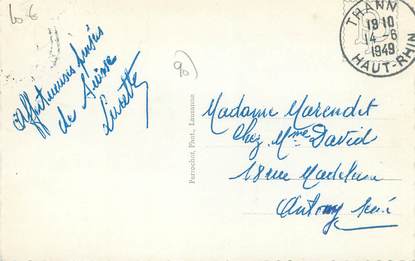 10 €
Affectueuses pensées
de Suisse
Lucette
90
Perrochet, Phot., Lausanne
THANN
18 10
14-6
1949
HAUT-RHIN
Madame Marendet
Chez Mme David
18 rue Madeleine
Antony Seine